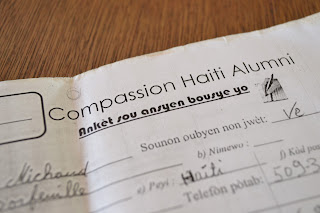 Compassion Haiti Alumni
Ankèt sou ansyen bousye yo
Sounon oubyen non jwèt: Ve
Michaud
b) Nimewo:
f) Kòd
e) Peyi: Haiti
Telefòn pòtab: 5093